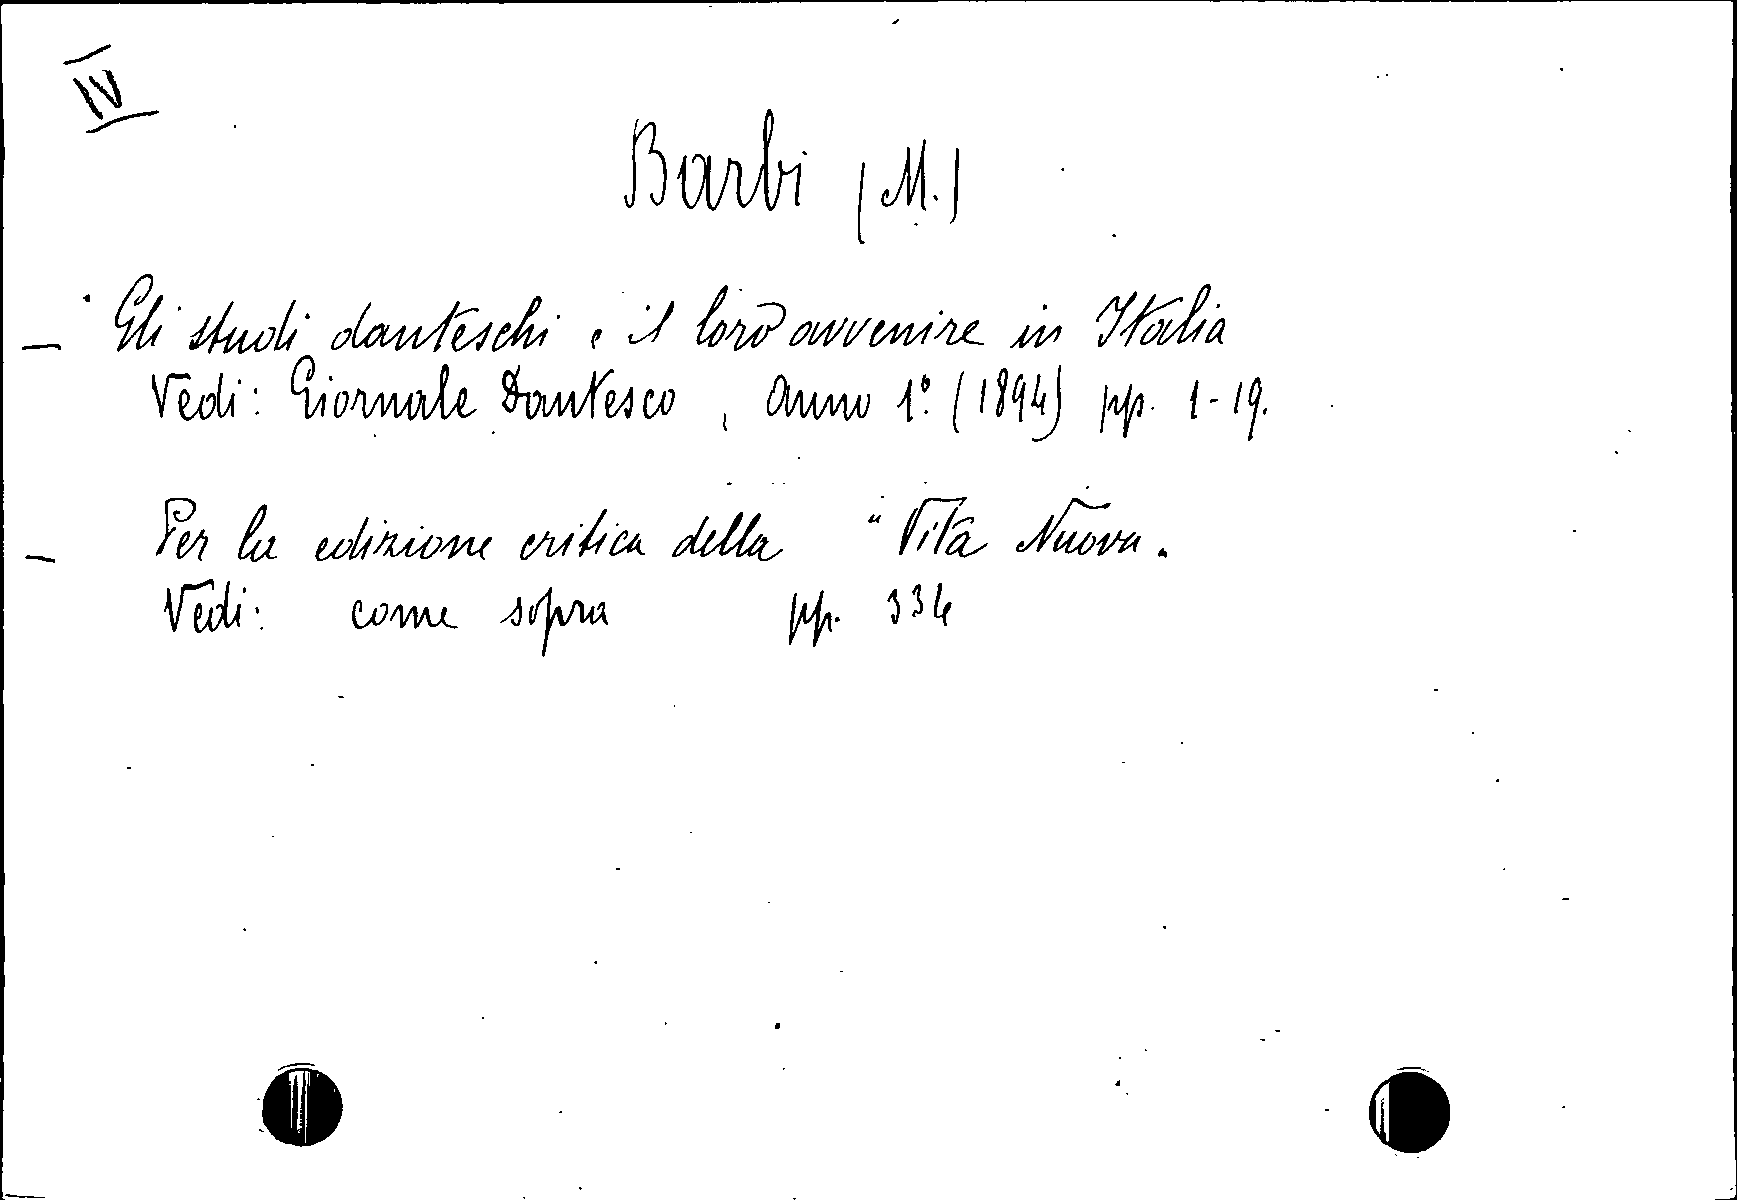 IV
Barbi (M.)
— Gli studi danteschi e il loro avvenire in Italia
Vedi: Giornale Dantesco, Anno 1º (1894) pp. 1-19.
— Per la edizione critica della "Vita Nuova"
Vedi: come sopra pp. 334